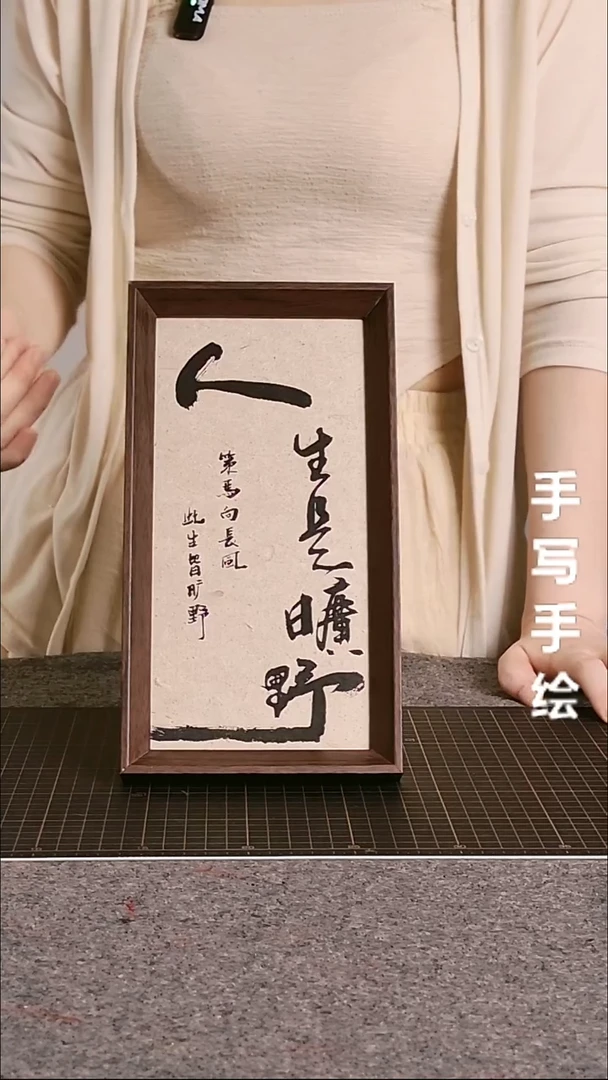 人生是曠野
策馬向長風
此生皆旷野
手写手绘